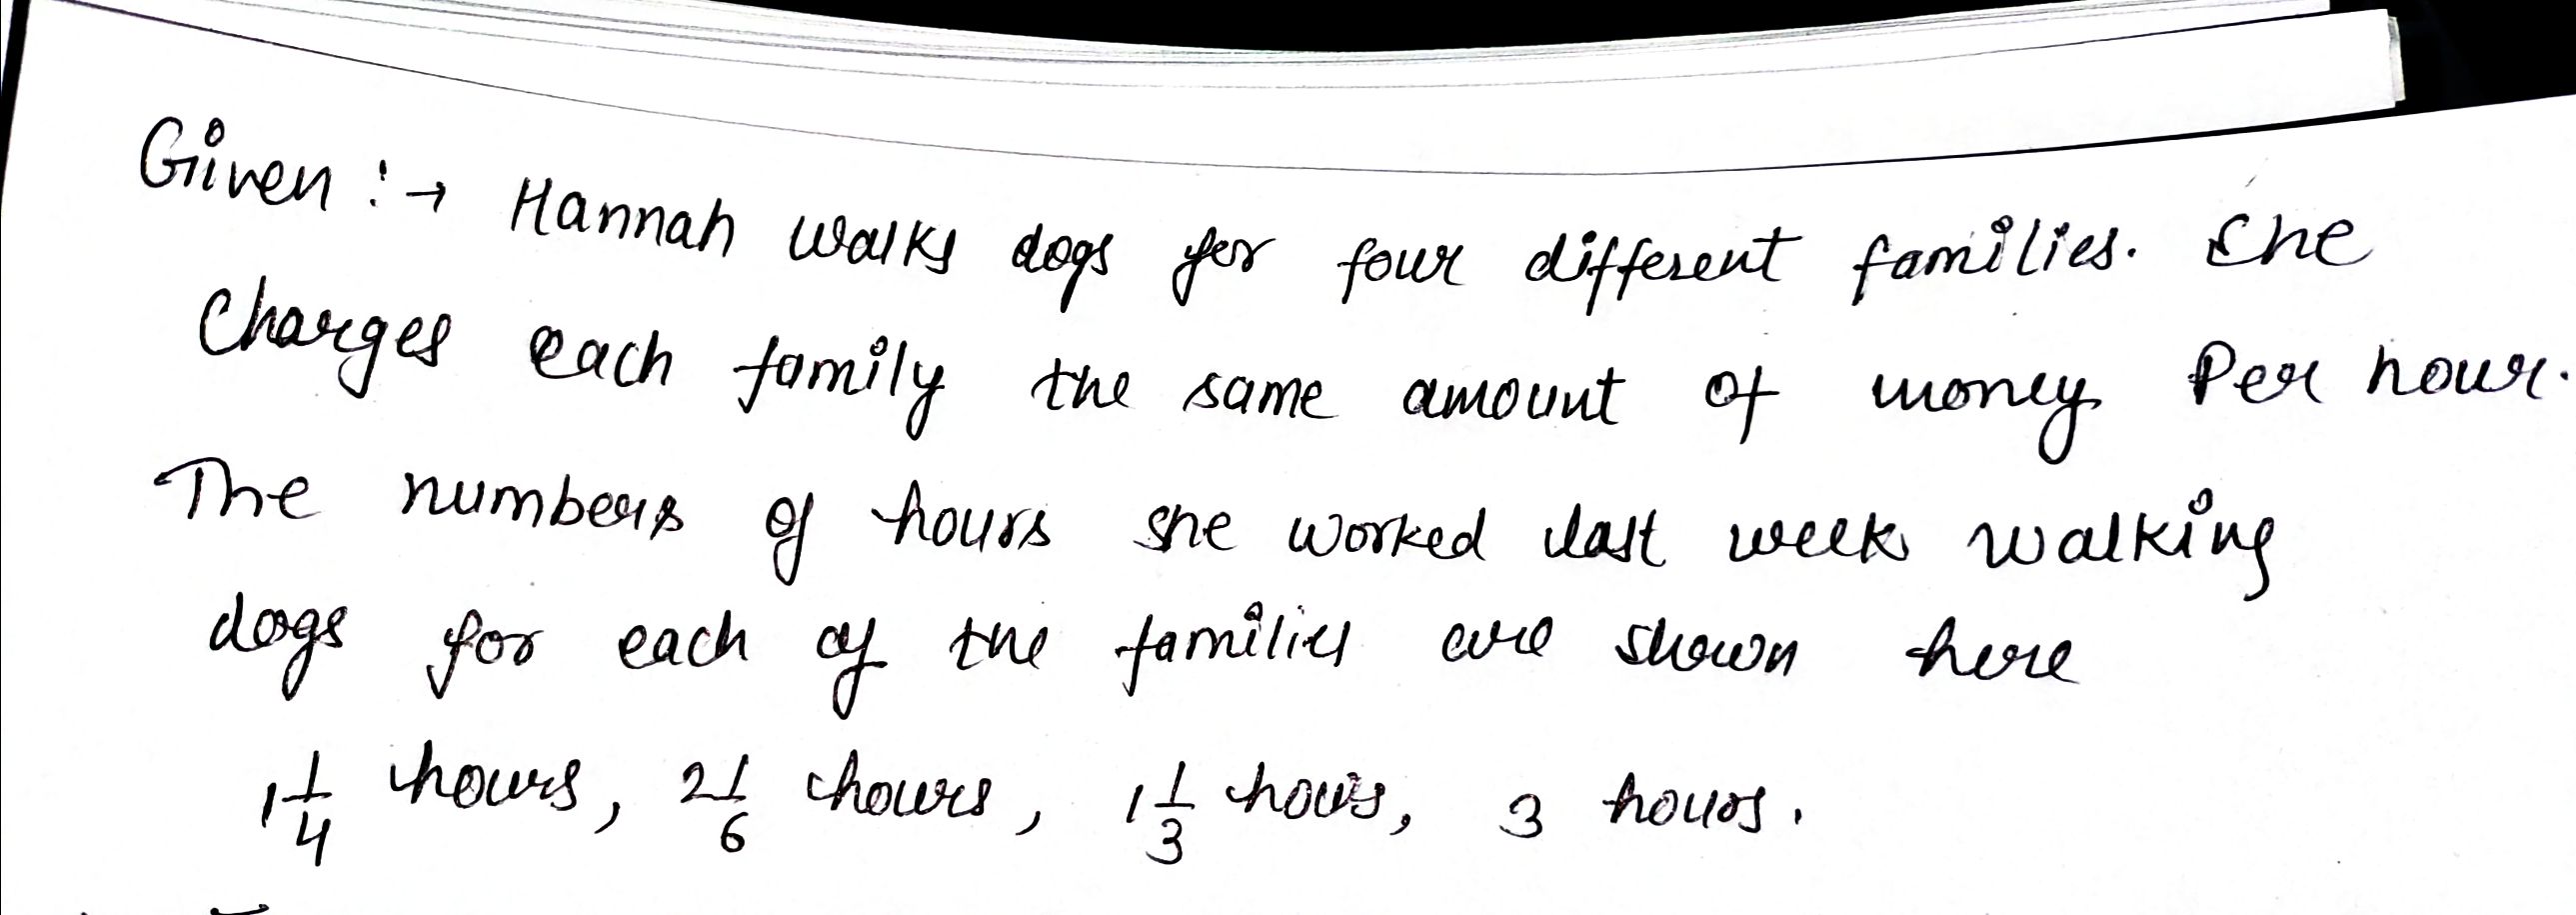 Given :→ Hannah walks dogs for four different families. She
charges each family the same amount of money Per hour.
The numbers of hours she worked last week walking
dogs for each of the families are shown here
1 1/4 hours, 2 1/6 hours, 1 1/3 hours, 3 hours.